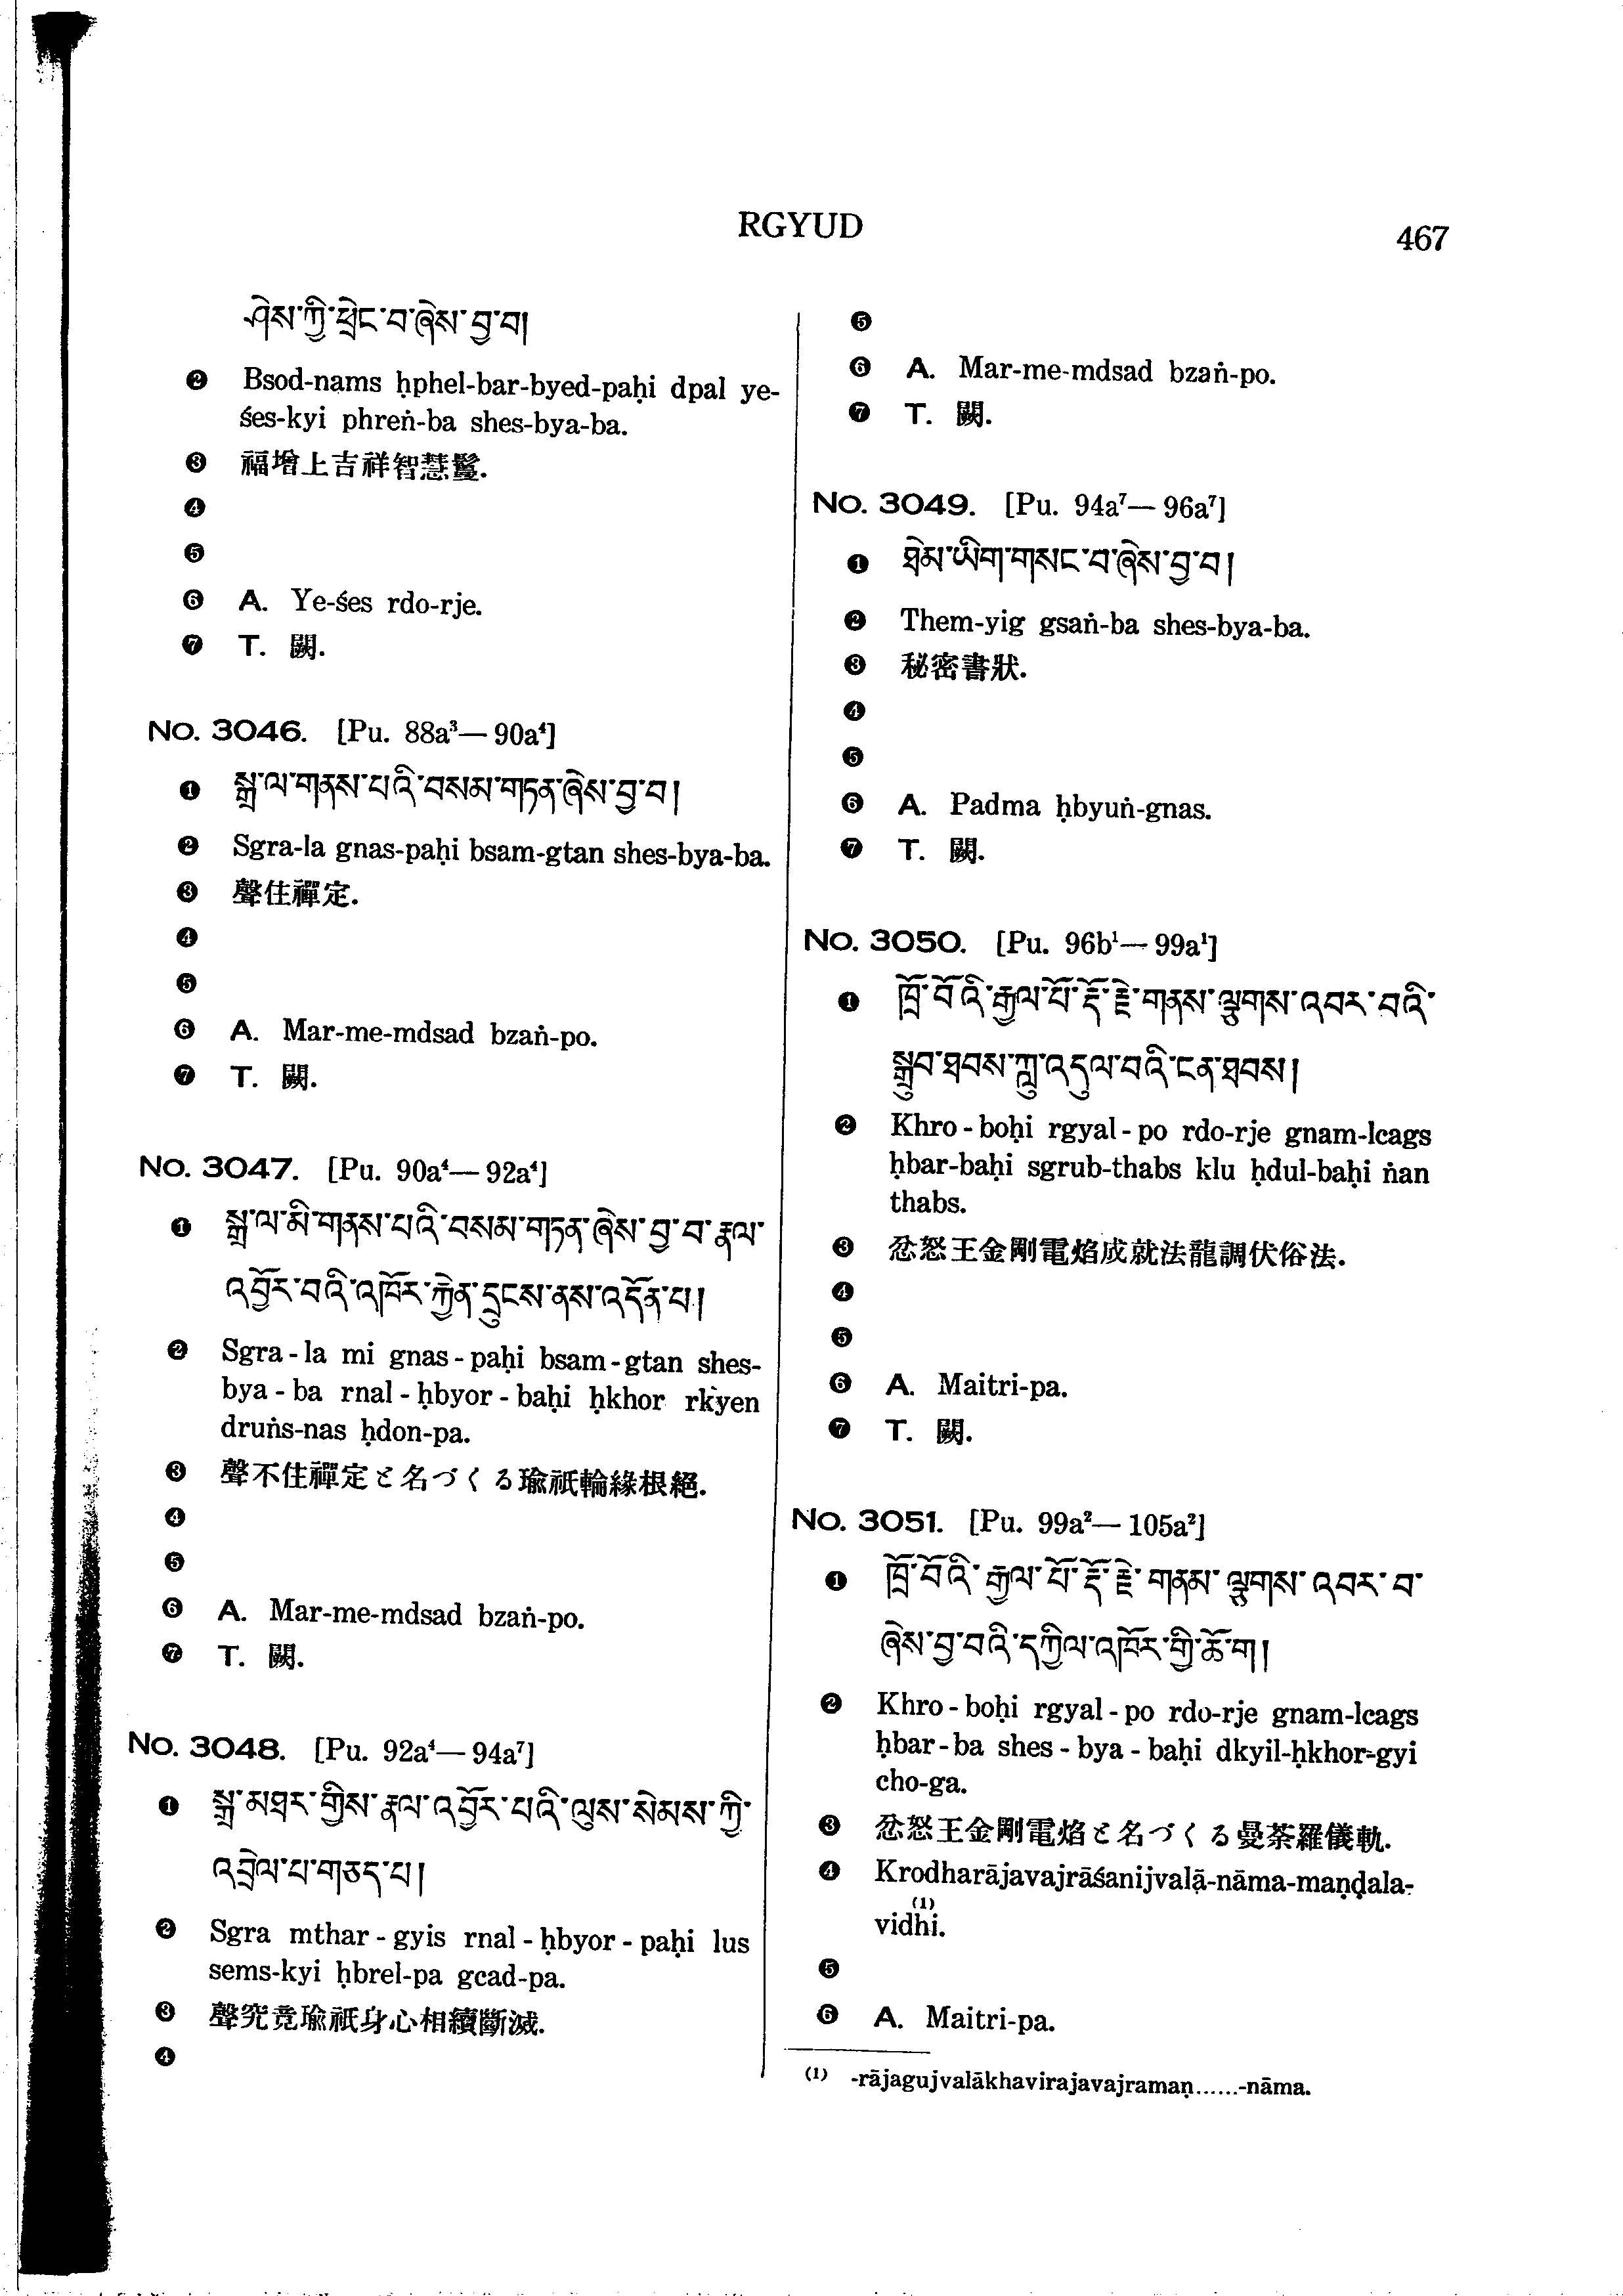 RGYUD
467
ཤེས་ཀྱི་ཕྲེང་བ་ཞེས་བྱ་བ།
❷ Bsod-nams ḥphel-bar-byed-paḥi dpal ye-
śes-kyi phreṅ-ba shes-bya-ba.
❸ 福增上吉祥智慧鬘.
❹
❺
❻ A. Ye-śes rdo-rje.
❼ T. 闕.
No. 3046. [Pu. 88a³— 90a⁴]
❶ སྒྲ་ལ་གནས་པའི་བསམ་གཏན་ཞེས་བྱ་བ།
❷ Sgra-la gnas-paḥi bsam-gtan shes-bya-ba.
❸ 聲住禪定.
❹
❺
❻ A. Mar-me-mdsad bzaṅ-po.
❼ T. 闕.
No. 3047. [Pu. 90a⁴— 92a⁴]
❶ སྒྲ་ལ་མི་གནས་པའི་བསམ་གཏན་ཞེས་བྱ་བ་རྣལ་
འབྱོར་བའི་འཁོར་རྐྱེན་དྲུངས་ནས་འདོན་པ།
❷ Sgra-la mi gnas-paḥi bsam-gtan shes-
bya-ba rnal-ḥbyor-baḥi ḥkhor rkyen
druṅs-nas ḥdon-pa.
❸ 聲不住禪定と名づくる瑜祇輪緣根絕.
❹
❺
❻ A. Mar-me-mdsad bzaṅ-po.
❼ T. 闕.
No. 3048. [Pu. 92a⁴— 94a⁷]
❶ སྒྲ་མཐར་གྱིས་རྣལ་འབྱོར་པའི་ལུས་སེམས་ཀྱི་
འབྲེལ་པ་གཅད་པ།
❷ Sgra mthar-gyis rnal-ḥbyor-paḥi lus
sems-kyi ḥbrel-pa gcad-pa.
❸ 聲究竟瑜祇身心相續斷滅.
❹
❺
❻ A. Mar-me-mdsad bzaṅ-po.
❼ T. 闕.
No. 3049. [Pu. 94a⁷— 96a⁷]
❶ ཐེམ་ཡིག་གསང་བ་ཞེས་བྱ་བ།
❷ Them-yig gsaṅ-ba shes-bya-ba.
❸ 秘密書狀.
❹
❺
❻ A. Padma ḥbyuṅ-gnas.
❼ T. 闕.
No. 3050. [Pu. 96b¹— 99a¹]
❶ ཁྲོ་བོའི་རྒྱལ་པོ་རྡོ་རྗེ་གནས་ལྕགས་འབར་བའི་
སྒྲུབ་ཐབས་ཀླུ་འདུལ་བའི་ངན་ཐབས།
❷ Khro-boḥi rgyal-po rdo-rje gnam-lcags
ḥbar-baḥi sgrub-thabs klu ḥdul-baḥi ṅan
thabs.
❸ 忿怒王金剛電焰成就法龍調伏俗法.
❹
❺
❻ A. Maitri-pa.
❼ T. 闕.
No. 3051. [Pu. 99a²— 105a²]
❶ ཁྲོ་བོའི་རྒྱལ་པོ་རྡོ་རྗེ་གནམ་ལྕགས་འབར་བ་
ཞེས་བྱ་བའི་དཀྱིལ་འཁོར་གྱི་ཆོ་ག།
❷ Khro-boḥi rgyal-po rdo-rje gnam-lcags
ḥbar-ba shes-bya-baḥi dkyil-ḥkhor-gyi
cho-ga.
❸ 忿怒王金剛電焰と名づくる曼荼羅儀軌.
❹ Krodharājavajrāśanijvalā-nāma-maṇḍala-
(1)
vidhi.
❺
❻ A. Maitri-pa.
(1) -rājagujvalākhavirajavajramaṇ......-nāma.